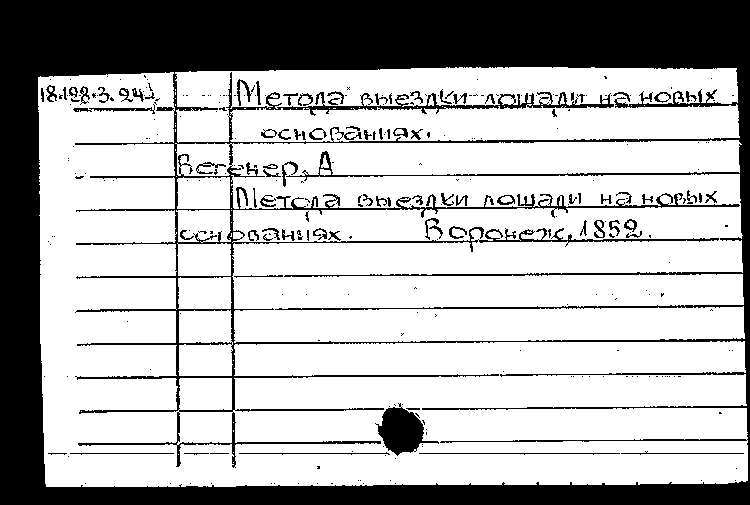 18.128.3.24
Метода выездки лошади на новых
основаниях.
Вегенер, А
Метода выездки лошади на новых
основаниях. Воронеж, 1852.